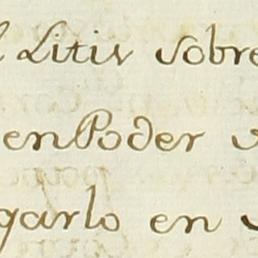 l Litis sobre
en Poder
garlo en